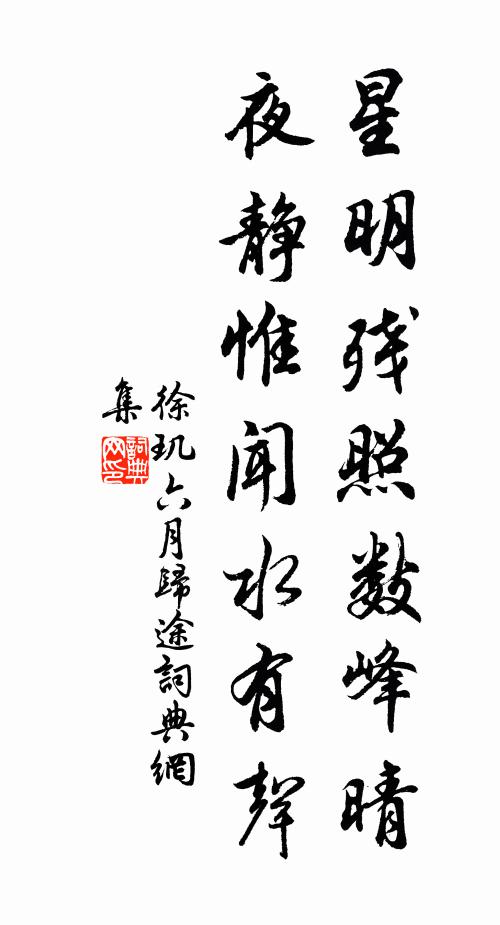 星明残照数峰晴
夜静惟闻水有聲
徐玑六月歸途詞典網
集
詞典网印